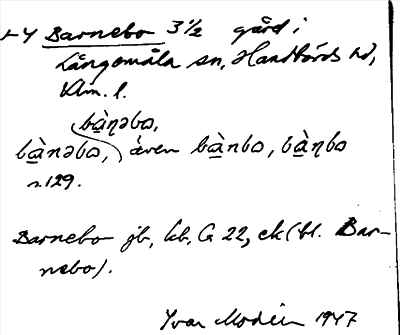 Barnebo 3 1/2 gård i
Långemåla sn, Handbörds hd,
Klm. l.
bàɳəbo,
bànəbo, även bànbo, bàɳbo
s. 129.
Barnebo jb, kb, G 22, ek (bl. Bar-
nebo).
Yvar Modéer 1947